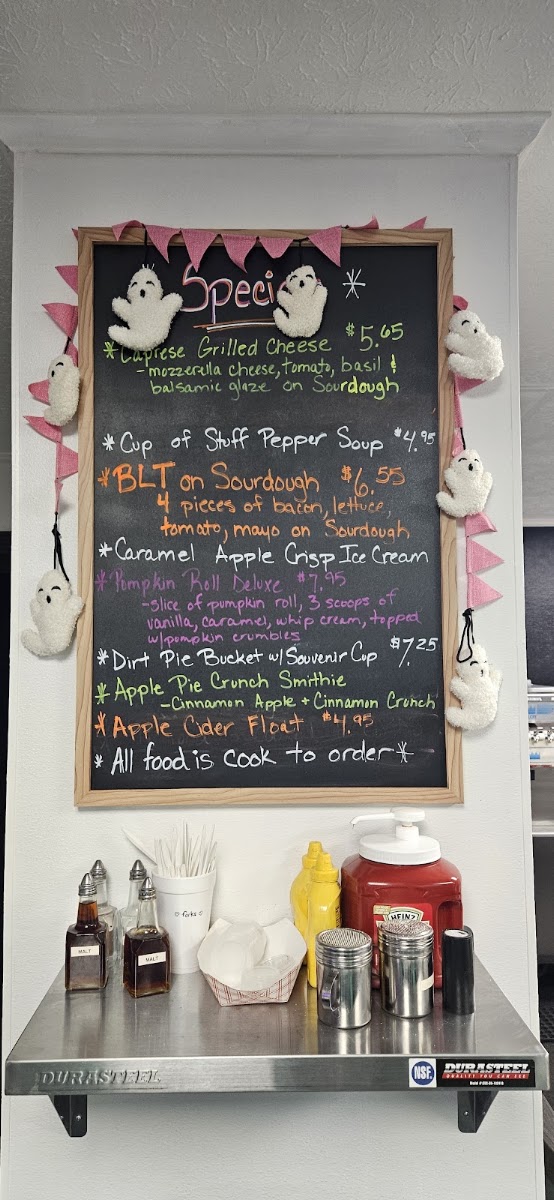 Speci
*Caprese Grilled Cheese $5.65
-mozzerella cheese, tomato, basil &
balsamic glaze on Sourdough
*Cup of Stuff Pepper Soup $4.95
*BLT on Sourdough $6.55
4 pieces of bacon, lettuce,
tomato, mayo on Sourdough
*Caramel Apple Crisp Ice Cream
*Pumpkin Roll Deluxe $7.95
-slice of pumpkin roll, 3 scoops of
vanilla, caramel, whip cream, topped
w/pumpkin crumbles
*Dirt Pie Bucket w/ Souvenir Cup $7.25
*Apple Pie Crunch Smithie
-Cinnamon Apple + Cinnamon Crunch
*Apple Cider Float $4.95
*All food is cook to order*
forks
MALT
MALT
HEINZ
DURASTEEL
NSF.
DURASTEEL
QUALITY YOU CAN SEE